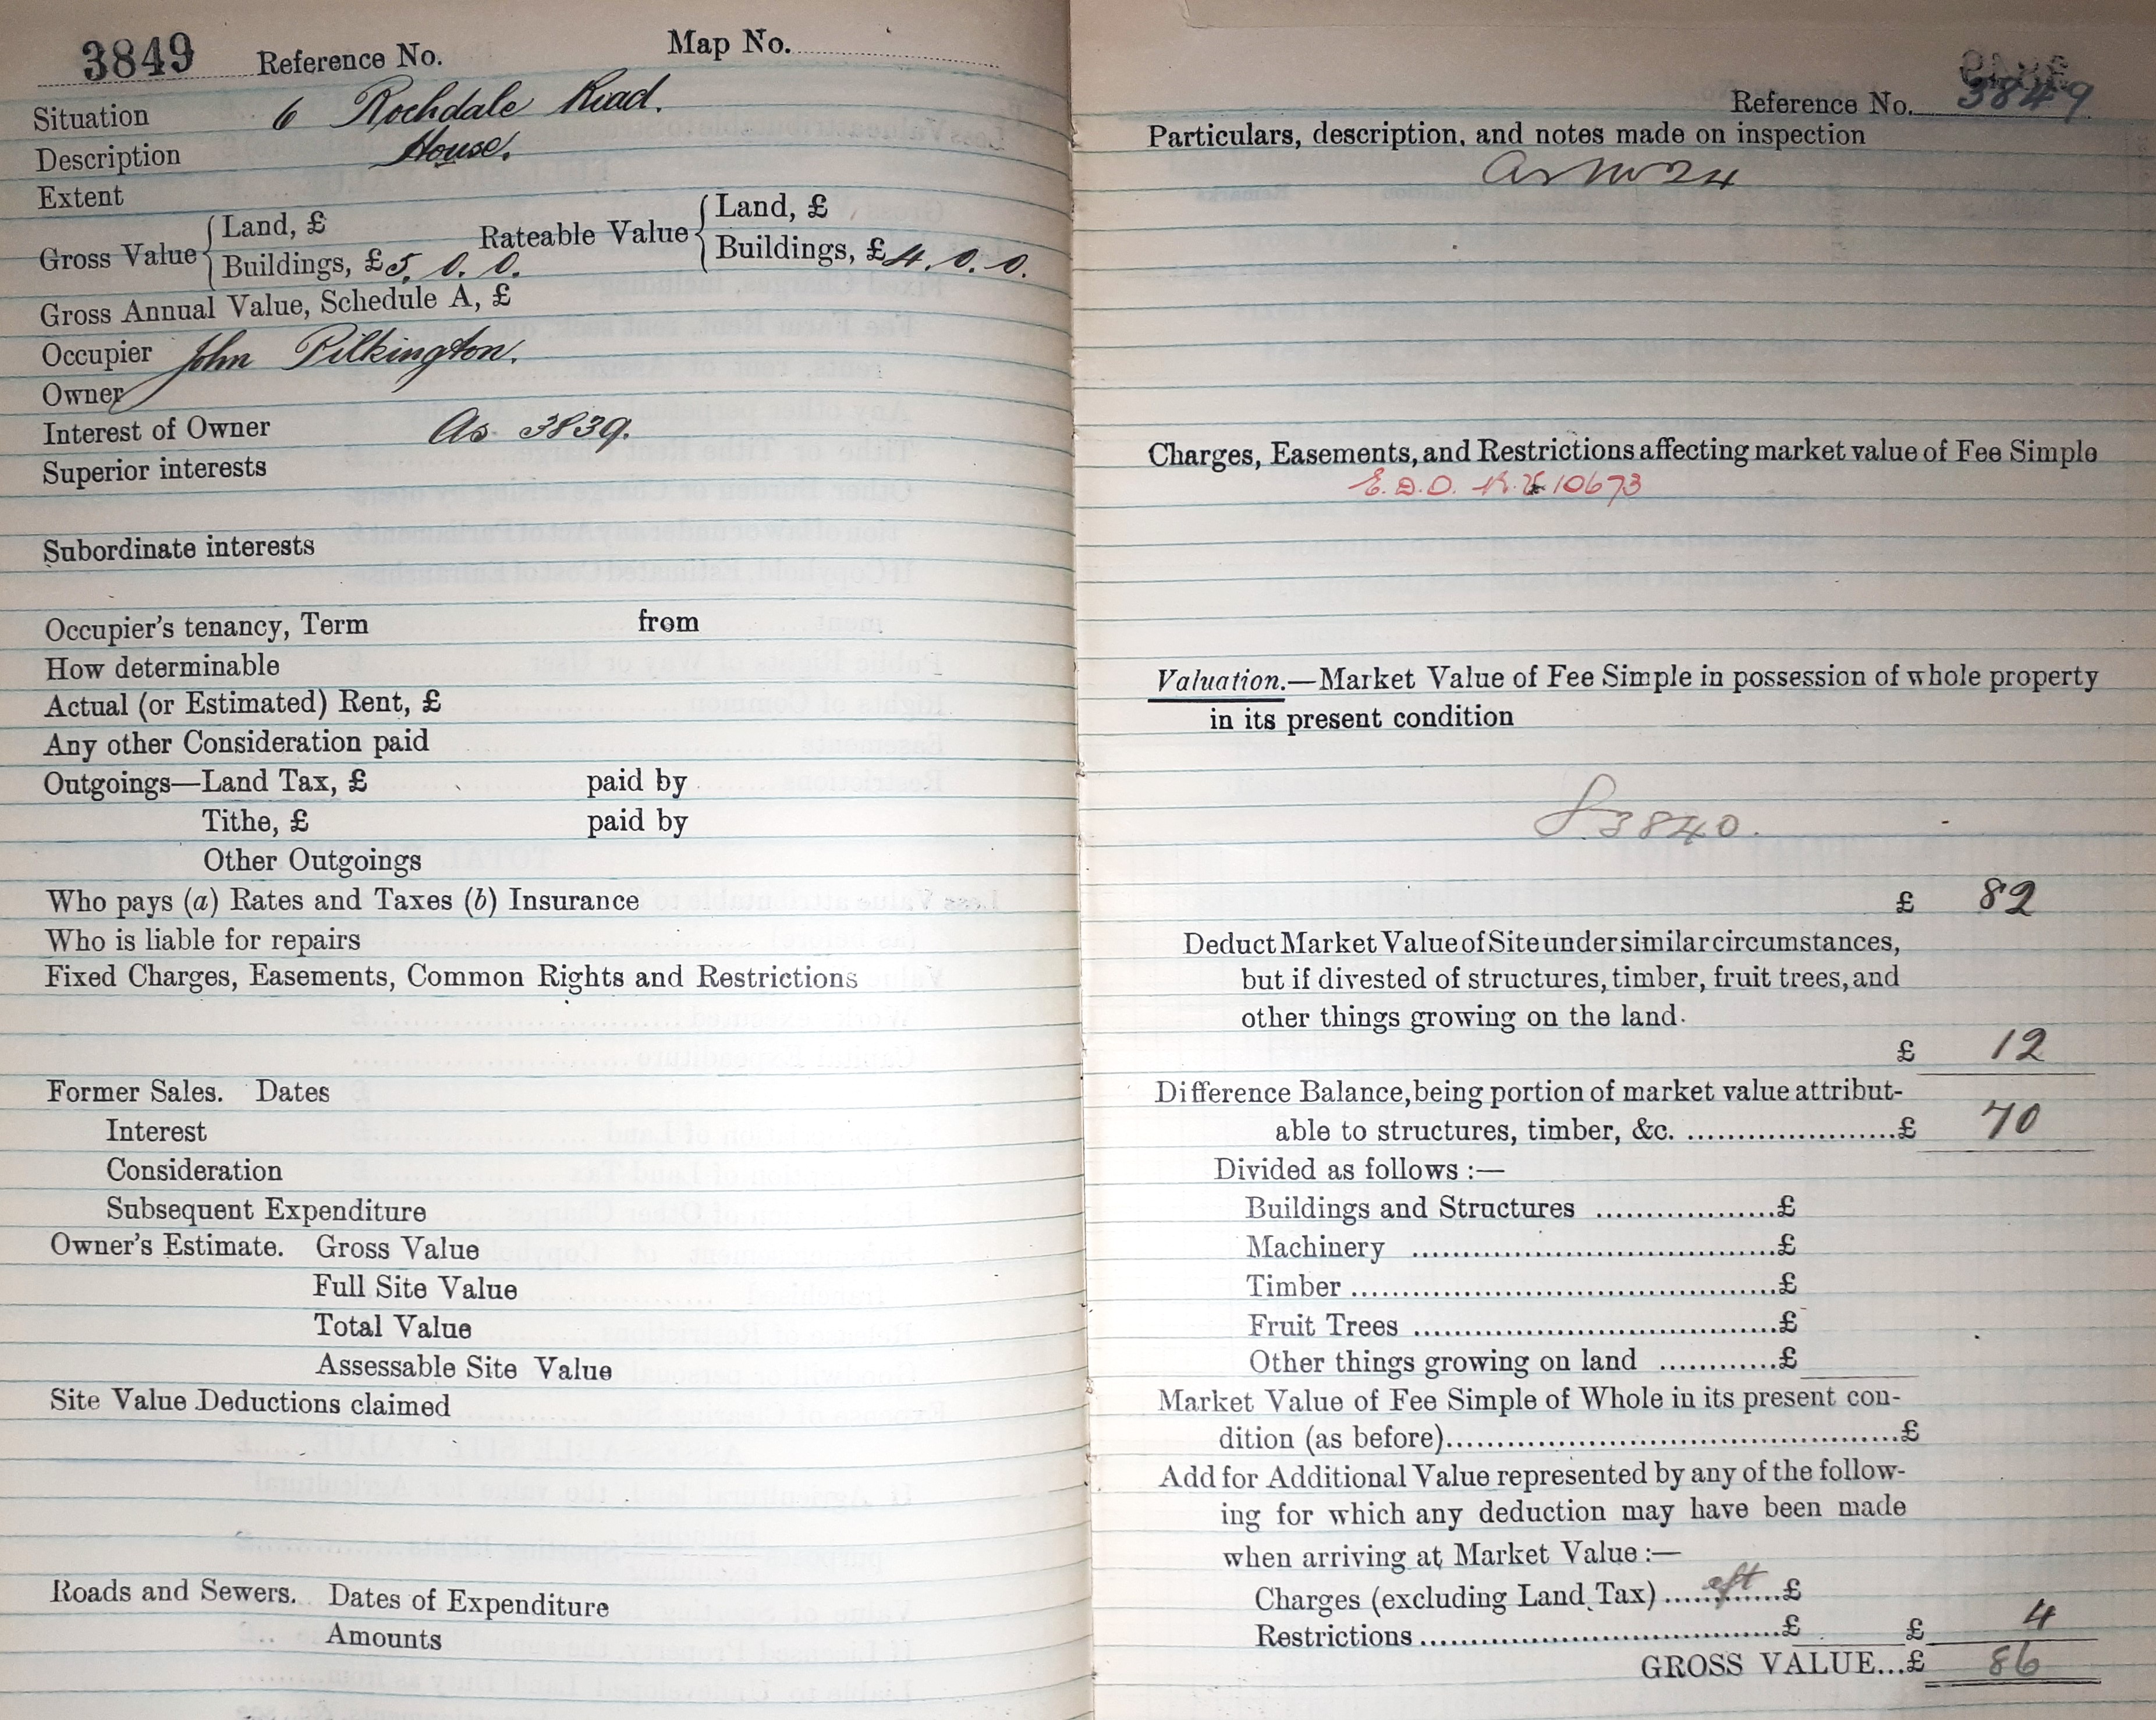 3849 Reference No. Map No.
Situation 6 Rochdale Road.
Description House.
Extent
Gross Value { Land, £ Rateable Value { Land, £
Buildings, £5. 0. 0. Buildings, £4. 0. 0.
Gross Annual Value, Schedule A, £
Occupier John Pilkington.
Owner
Interest of Owner As 3839.
Superior interests
Subordinate interests
Occupier's tenancy, Term from
How determinable
Actual (or Estimated) Rent, £
Any other Consideration paid
Outgoings—Land Tax, £ paid by
Tithe, £ paid by
Other Outgoings
Who pays (a) Rates and Taxes (b) Insurance
Who is liable for repairs
Fixed Charges, Easements, Common Rights and Restrictions
Former Sales. Dates
Interest
Consideration
Subsequent Expenditure
Owner's Estimate. Gross Value
Full Site Value
Total Value
Assessable Site Value
Site Value Deductions claimed
Roads and Sewers. Dates of Expenditure
Amounts
Reference No. 3849
Particulars, description, and notes made on inspection
as No 24
Charges, Easements, and Restrictions affecting market value of Fee Simple
10673
Valuation.—Market Value of Fee Simple in possession of whole property
in its present condition
3840.
£ 82
Deduct Market Value of Site under similar circumstances,
but if divested of structures, timber, fruit trees, and
other things growing on the land.
£ 12
Difference Balance, being portion of market value attribut-
able to structures, timber, &c. ......................£ 70
Divided as follows :—
Buildings and Structures ..................£
Machinery ......................................£
Timber ............................................£
Fruit Trees ......................................£
Other things growing on land ............£
Market Value of Fee Simple of Whole in its present con-
dition (as before)..............................................£
Add for Additional Value represented by any of the follow-
ing for which any deduction may have been made
when arriving at Market Value :—
Charges (excluding Land Tax) ............£
Restrictions ......................................£ £ 4
GROSS VALUE...£ 86